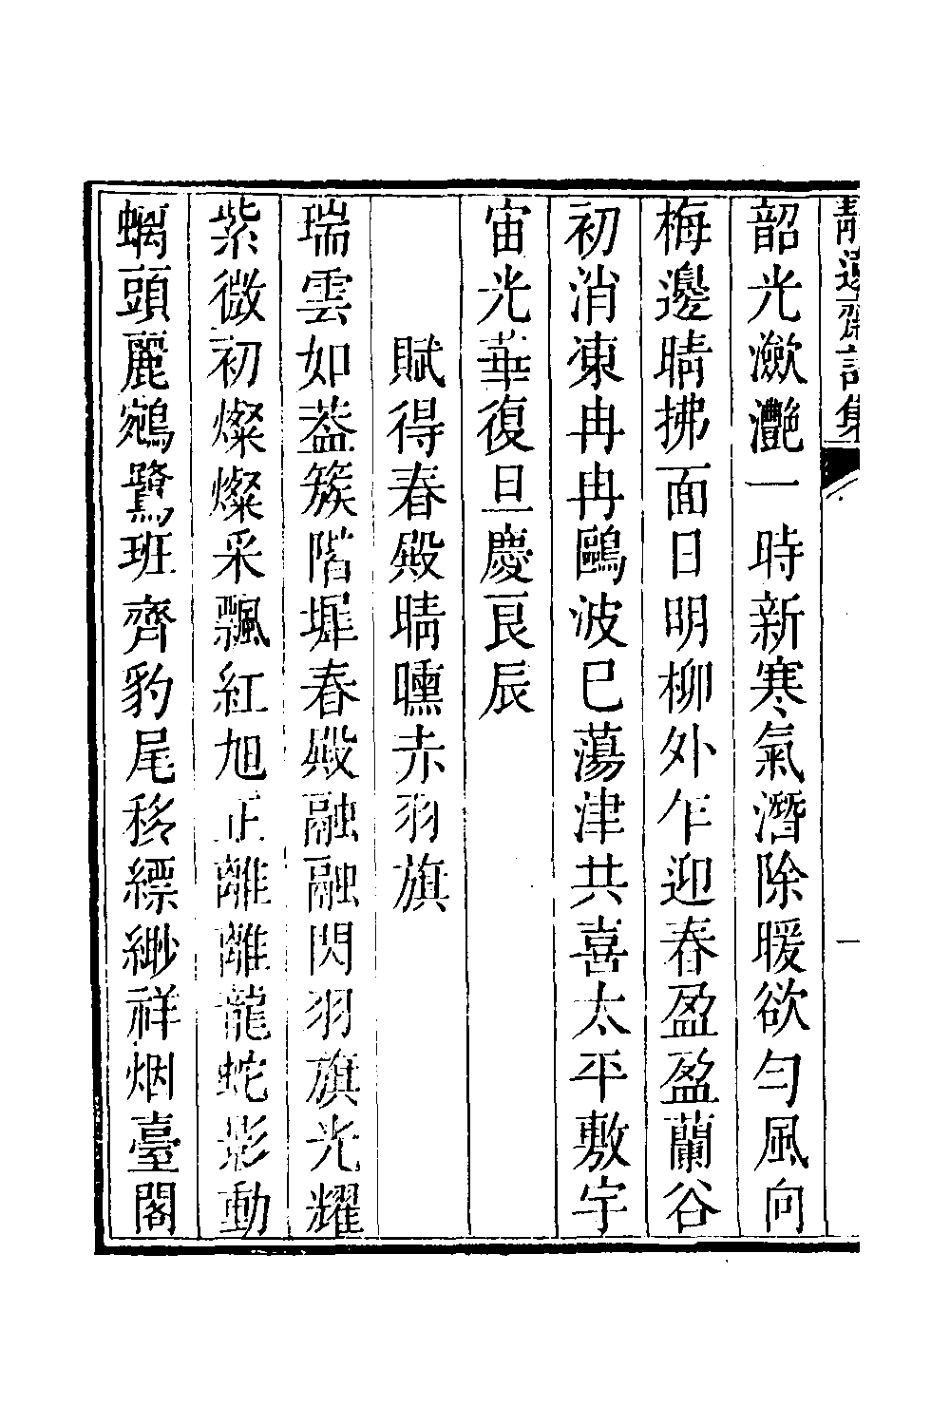 靜遠齋詩集 一
韶光瀲灩一時新寒氣潛除暖欲勻風向
梅邊晴拂面日明柳外乍迎春盈盈蘭谷
初消凍冉冉鷗波巳蕩津共喜太平敷宇
宙光華復旦慶良辰
賦得春殿晴曛赤羽旗
瑞雲如葢簇階墀春殿融融閃羽旗光耀
紫微初燦燦采飄紅旭正離離龍蛇影動
螭頭麗鵷鷺班齊豹尾移縹緲祥烟臺閣